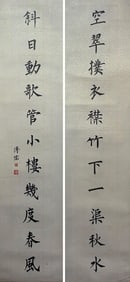 空翠撲衣襟竹下一渠秋水
斜日動歌管小樓幾度春風
溥儒